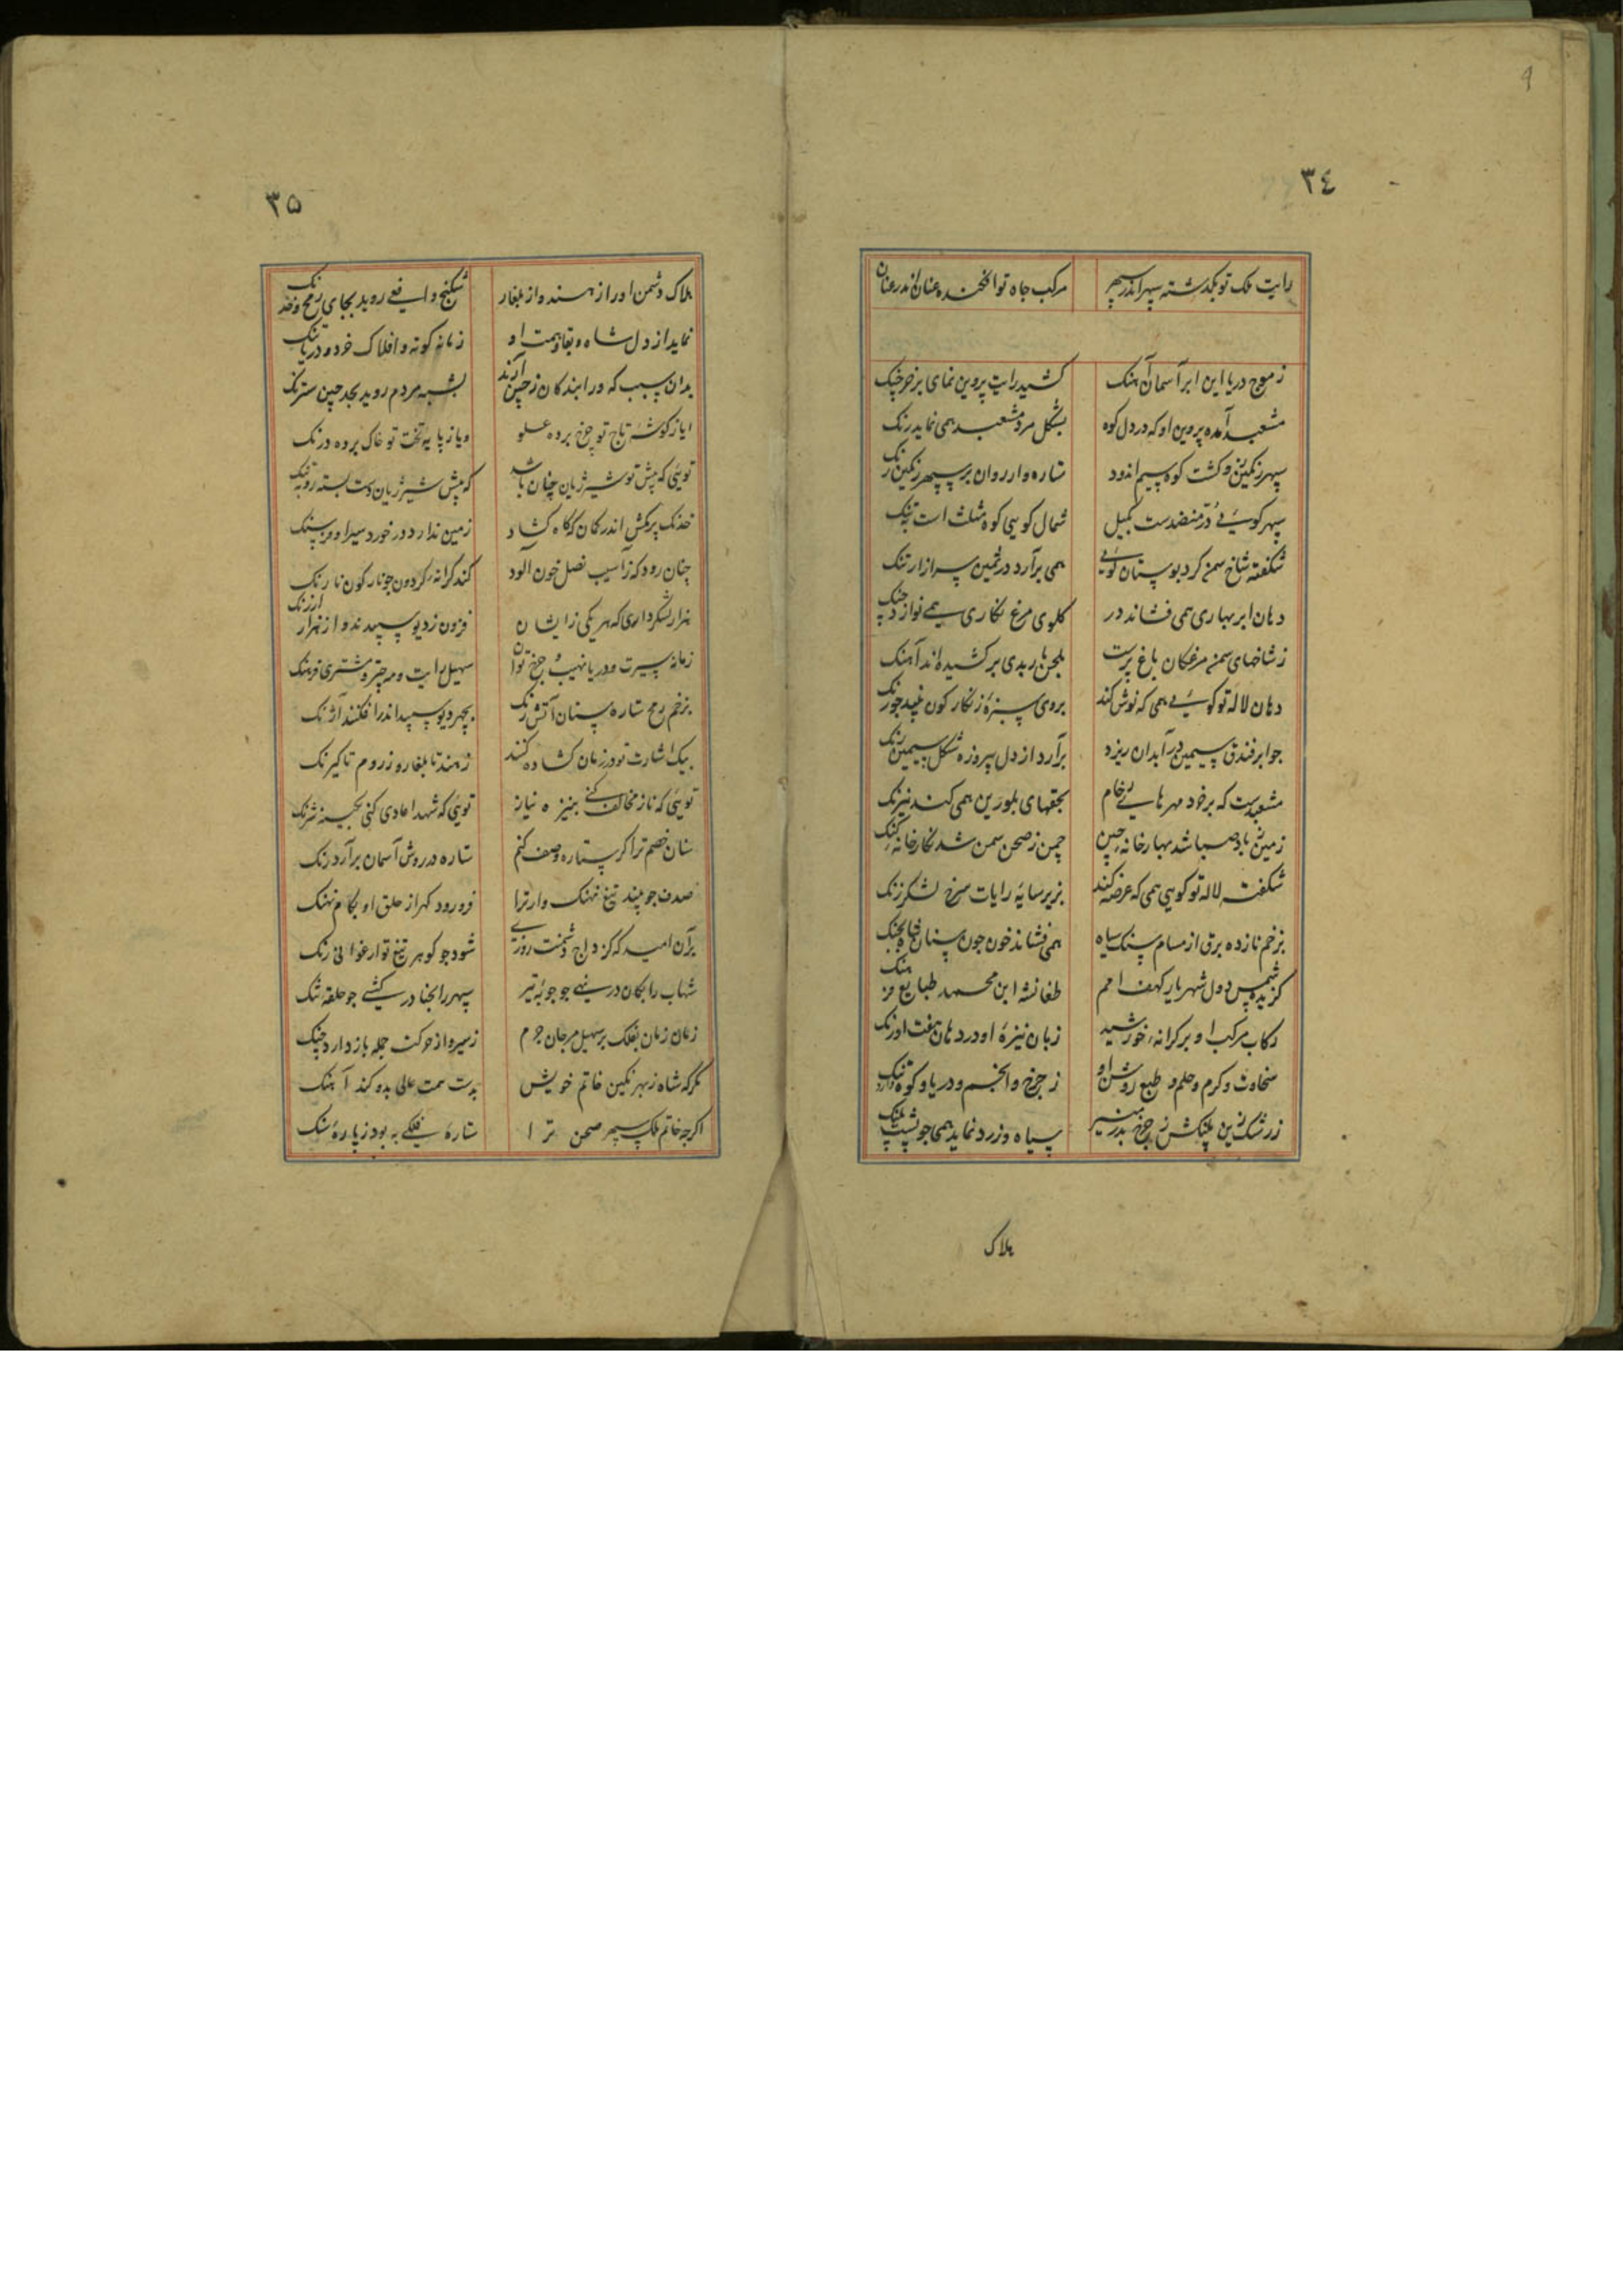 9
٣٤
رایت ملک تو بگذشته سپهر اندر سپهر مرکب جاه تو افکنده عنان اندر عنان
ز موج دریا این ابر آسمان آهنک کشید رایت پروین نمای بر خرچنک
مشعبد آمده پروین او که در دل کوه بشکل مرد مشعبد همی نماید رنک
سپهر رنکین کشت کوه سیم اندود ستاره وار روان بر سپهر رنکین رنک
سپهر کوسئی در منضدست بمیل شمال کویی کوه مثلث است تنک
شکفته شاخ سمن کرد بوستان کویی همی برآرد در ثمین سر از ارتنک
دهان ابر بهاری همی فشاند در کلوی مرغ نکاری همی نوازد چنک
ز شاخهای سمن مرغکان باغ پرست بلحن باربدی برکشیده اند آهنک
دهان لاله تو کوسئی همی که نوش کند بروی سبزه زنکار کون
جو ابر فندق سیمین در آبدان ریزد برآرد از دل پیروزه شکل سیمین رنک
مشعبدست که بر خرد مهرهای رخام بحقهای بلورین همی کند نیرنک
زمین ز باد صبا شد بهار خانه چین چمن ز صحن سمن شد نکارخانه کنک
شکفت لاله تو کویی همی که عرضه کند بزیر سایه رایات سرخ لشکر زنک
بزخم نازده برق از مسام سنک سیاه همی فشاند خون جون سنان شاه بجنک
کزیده شمس دول شهریار کهف امم طغانشه ابن محمد طبایع فرهنک
رکاب مرکب او بر کرانه خورشید زبان نیزه او در دهان هفت اورنک
سخاوت و کرم و حلم و طبع روشن او ز چرخ و انجم و دریا و کوه دارد ننک
ز رشک زین پلنکش ز چرخ بدر منیر سیاه و زرد نماید همی جو پشت پلنک
هلاک
٣۵
هلاک دشمن او را ز هند و از بلغار شکنج و افعی روید بجای رمح و خدنک
نماید از دل شاه و بقا و همت او زمانه کوته و افلاک خرد و دریا تنک
بدان سبب که ورا بندکان ز چین آرند بشبه مردم روید بحد چین سترنک
ایا ز کوشه تاج تو چرخ برده علو و یا ز پایه تخت تو خاک برده درنک
توئی که پیش تو شیر ژیان چنان باشد که پیش شیر ژیان دست بسته روبه لنک
خدنک پرکش اندر کمان که کاه کشاد زمین ندارد در خورد سیر او فرسنک
چنان رود که ز آسیب نصل خون آلود کند کرانه کردون جو نار کون نارنک
هزار لشکر داری که هر یکی زایشان فزون ز دیو سپیدند و از هزار ارژنک
زمانه سیرت و دریا نهیب و چرخ توان سهیل رایت و مه چتر و مشتری فرهنک
بزخم رمح ستاره سنان آتش رنک بچهر دیو سپید اندر افکنند آژنک
بیک اشارت تو در زمان کشاده کنند ز هند تا بلغار و ز روم تا کیرنک
توئی که ناز مخالف کنی بنیزه نیاز توئی که شهد اعادی کنی بکینه شرنک
سنان خصم ترا کر ستاره وصف کنم ستاره در روش آسمان برآرد زنک
صدف جو بیند تیغ نهنک وار ترا فرو رود کهر از حلق او بکام نهنک
برآن امید که کز دراج دشمنت روزی شود جو کوهر تیغ تو ارغوانی رنک
شهاب را بکمان در نهی جو جوبه تیر سپهر را بخنا در کشی جو حلقه تنک
زمان زمان بفلک بر سهیل مرجان جرم ز سیر و از حرکت جمله باز دارد چنک
مکر که شاه ز بهر نکین خاتم خویش بدست همت عالی بدو کند آهنک
اکرجه خاتم ملک سپهر صحن ترا ستاره فلکی به بود ز پاره سنک